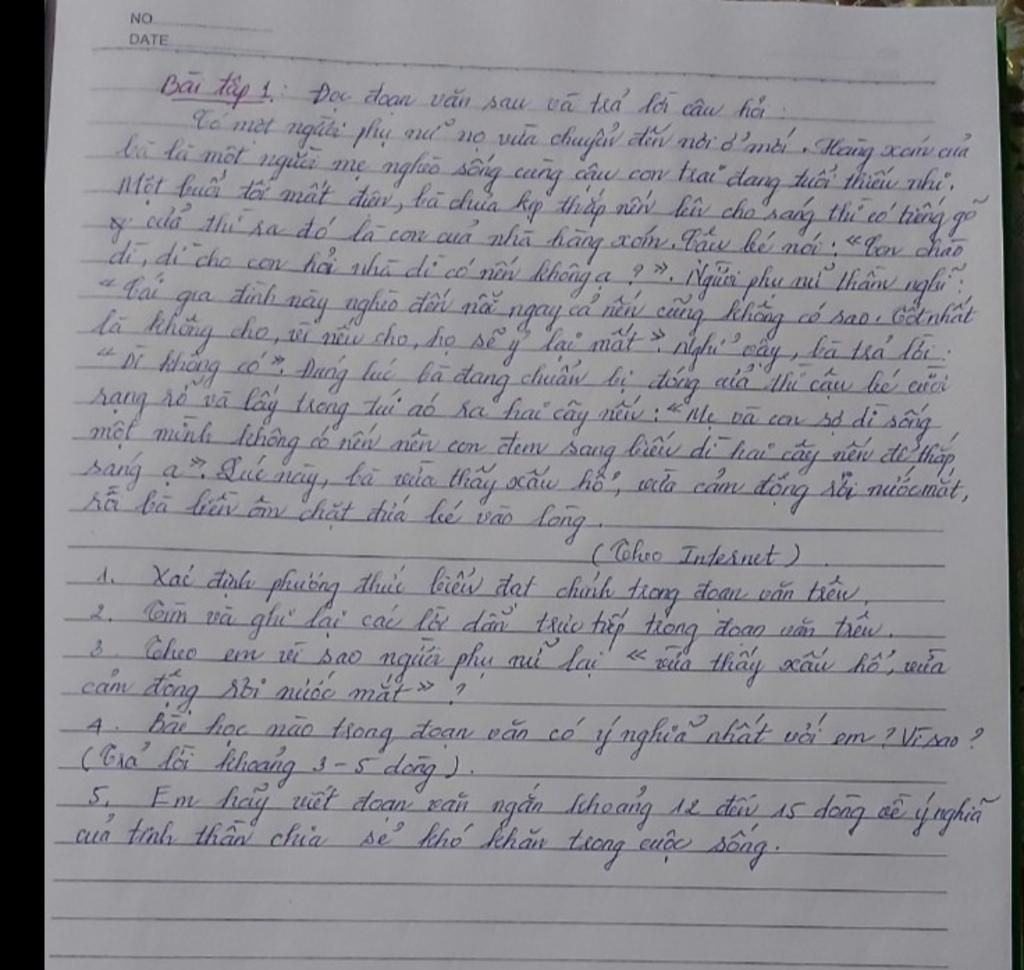 NO
DATE
Bài tập 1: Đọc đoạn văn sau và trả lời câu hỏi:
Có một người phụ nữ nọ vừa chuyển đến nơi ở mới. Hàng xóm của
bà là một người mẹ nghèo sống cùng cậu con trai đang tuổi thiếu nhi.
Một buổi tối mất điện, bà chưa kịp thắp nến lên cho sáng thì có tiếng gõ
cửa thì ra đó là con của nhà hàng xóm. Cậu bé nói: "Con chào
dì, dì cho con hỏi nhà dì có nến không ạ?". Người phụ nữ thầm nghĩ:
"Cái gia đình này nghèo đến nỗi ngay cả nến cũng không có sao. Tốt nhất
là không cho, vì nếu cho, họ sẽ ỷ lại mất". Nghĩ vậy, bà trả lời:
"Dì không có". Đúng lúc bà đang chuẩn bị đóng cửa thì cậu bé cười
rạng rỡ và lấy trong túi áo ra hai cây nến: "Mẹ và con sợ dì sống
một mình không có nến nên con đem sang biếu dì hai cây nến để thắp
sáng ạ". Lúc này, bà vừa thấy xấu hổ, vừa cảm động rơi nước mắt,
rồi bà liền ôm chặt đứa bé vào lòng.
(Theo Internet)
1. Xác định phương thức biểu đạt chính trong đoạn văn trên.
2. Tìm và ghi lại các lời dẫn trực tiếp trong đoạn văn trên.
3. Theo em vì sao người phụ nữ lại "vừa thấy xấu hổ, vừa
cảm động rơi nước mắt"?
4. Bài học nào trong đoạn văn có ý nghĩa nhất với em? Vì sao?
(Trả lời khoảng 3-5 dòng).
5. Em hãy viết đoạn văn ngắn khoảng 12 đến 15 dòng về ý nghĩa
của tinh thần chia sẻ khó khăn trong cuộc sống.